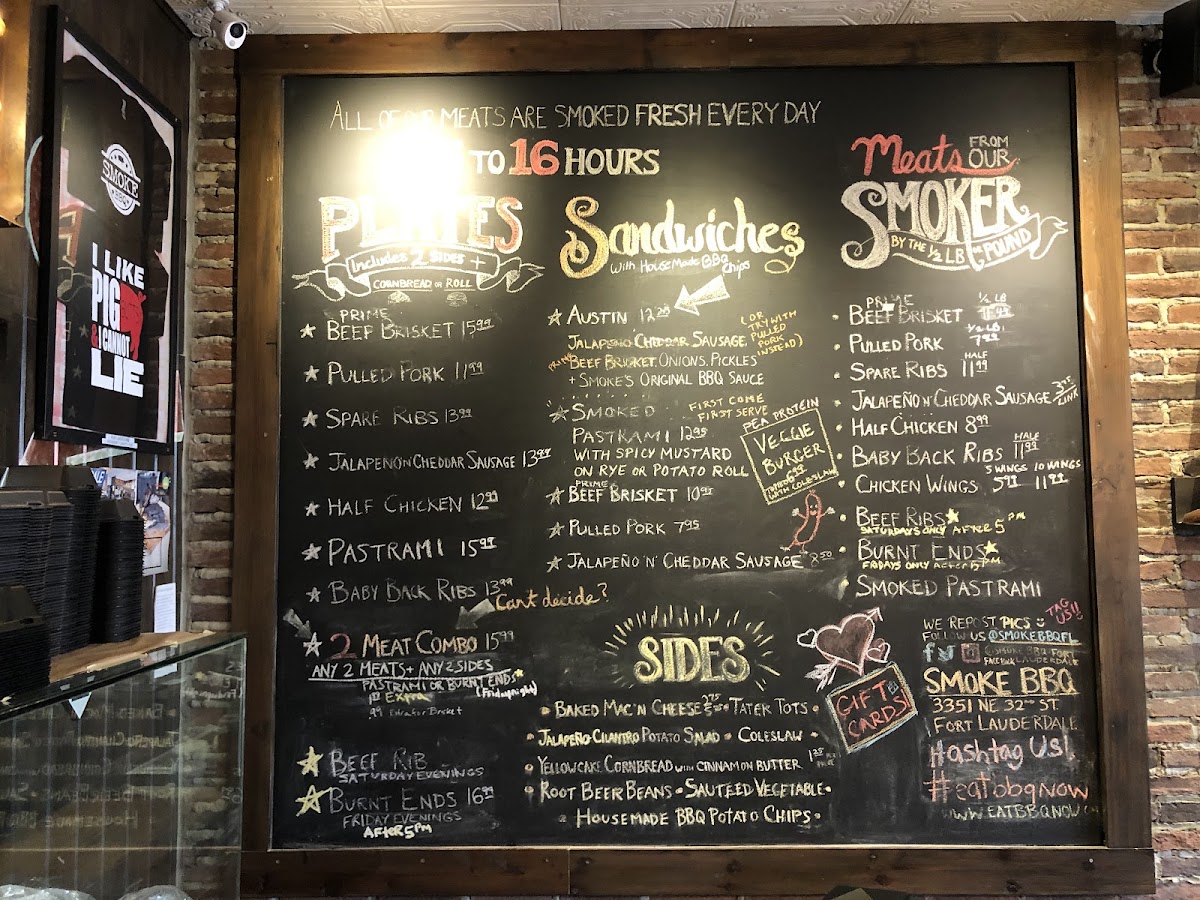 SMOKE
BBQ
I LIKE
PIG
& I CANNOT
LIE
ALL OF OUR MEATS ARE SMOKED FRESH EVERY DAY
TO 16 HOURS
PLATES
Includes 2 SIDES +
CORNBREAD OR ROLL
PRIME
BEEF BRISKET 15.99
PULLED PORK 11.99
SPARE RIBS 13.99
JALAPEÑO'N'CHEDDAR SAUSAGE 13.99
HALF CHICKEN 12.99
PASTRAMI 15.99
BABY BACK RIBS 13.99
Can't decide?
2 MEAT COMBO 15.99
ANY 2 MEATS + ANY 2 SIDES
PASTRAMI OR BURNT ENDS*
(Friday night)
Extra
.99 Extra for Brisket
BEEF RIB
SATURDAY EVENINGS
BURNT ENDS 16.99
FRIDAY EVENINGS
AFTER 5PM
Sandwiches
With HouseMade BBQ Chips
AUSTIN
JALAPEÑO CHEDDAR SAUSAGE,
(OR TRY WITH PULLED PORK INSTEAD)
PRIME BEEF BRISKET, ONIONS, PICKLES
+ SMOKE'S ORIGINAL BBQ SAUCE
SMOKED
FIRST COME
FIRST SERVE
PASTRAMI 12.95
WITH SPICY MUSTARD
ON RYE OR POTATO ROLL
PRIME
BEEF BRISKET 10.95
PULLED PORK 7.95
JALAPEÑO 'N' CHEDDAR SAUSAGE 8.50
PEA PROTEIN
VEGGIE
BURGER
WITH COLESLAW
SIDES
BAKED MAC'N CHEESE • TATER TOTS
JALAPEÑO CILANTRO POTATO SALAD • COLESLAW
YELLOWCAKE CORNBREAD WITH CINNAMON BUTTER
ROOT BEER BEANS • SAUTEED VEGETABLE
HOUSEMADE BBQ POTATO CHIPS
Meats FROM OUR
SMOKER
BY THE ½ LB OR POUND
PRIME
BEEF BRISKET ½ LB
PULLED PORK ½ LB. 7.99
SPARE RIBS HALF 11.99
JALAPEÑO 'N' CHEDDAR SAUSAGE LINK
HALF CHICKEN 8.99
BABY BACK RIBS HALF 11.99
5 WINGS 10 WINGS
CHICKEN WINGS 5.99 11.99
BEEF RIBS*
SATURDAYS ONLY AFTER 5 PM
BURNT ENDS*
FRIDAYS ONLY AFTER 5 PM
SMOKED PASTRAMI
GIFT
CARDS!
WE REPOST PICS
TAG US!!
FOLLOW US @SMOKEBBQFL
@SMOKE BBQ FORT LAUDERDALE
FACEBOOK
SMOKE BBQ
3351 NE 32ND ST.
FORT LAUDERDALE
Hashtag Us!
#eatbbqnow
WWW.EATBBQNOW